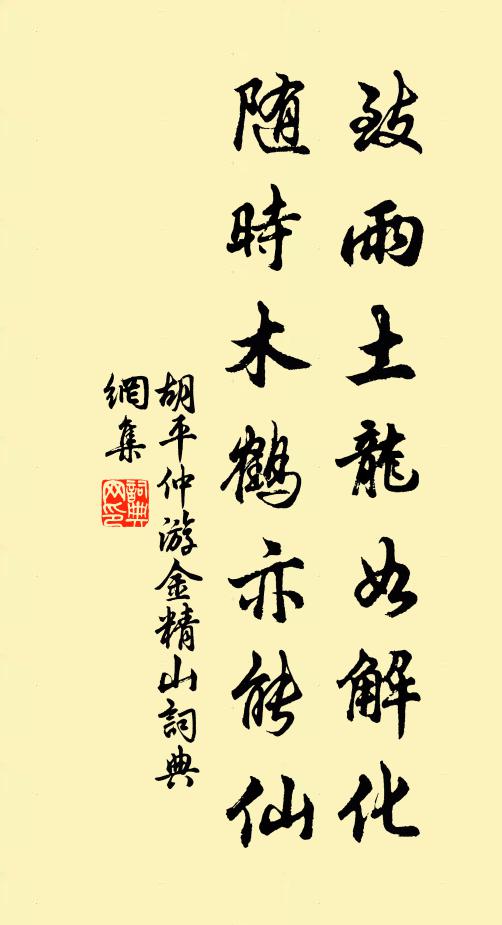 致雨土龍如解化
隨時木鶴亦能仙
胡平仲游金精山詞典
網集
詞典
网印